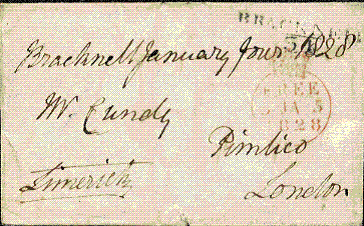 BRACKNELL
Bracknell January four 1828
FREE
JA 5
1828
Mr. Cundy
Pimlico
Limerick
London